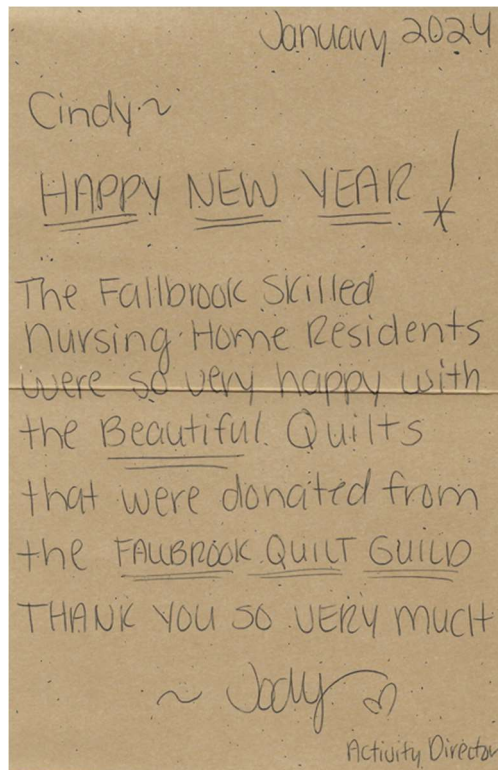 January 2024
Cindy~
HAPPY NEW YEAR!
The Fallbrook Skilled
Nursing Home Residents
were so very happy with
the Beautiful Quilts
that were donated from
the FALLBROOK QUILT GUILD
THANK YOU SO VERY MUCH
~ Jody
Activity Director